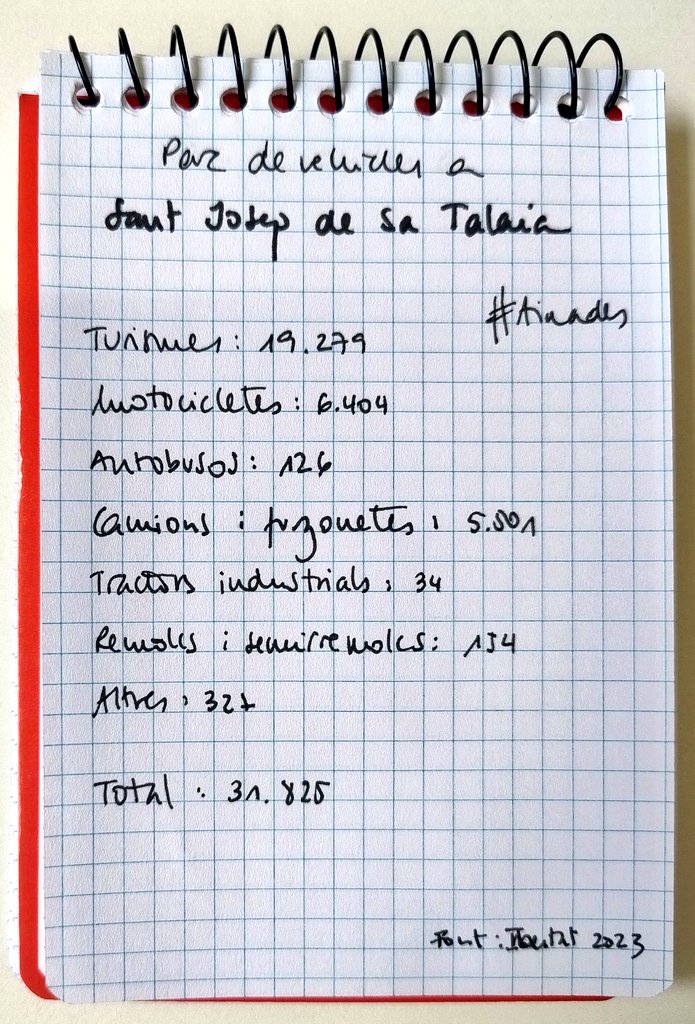 Parc de vehicles a
Sant Josep de sa Talaia
#Ainades
Turismes: 19.279
Motocicletes: 6.404
Autobusos: 126
Camions i furgonetes: 5.501
Tractors industrials: 34
Remolcs i semirremolcs: 154
Altres: 327
Total: 31.825
Font: Ibestat 2023